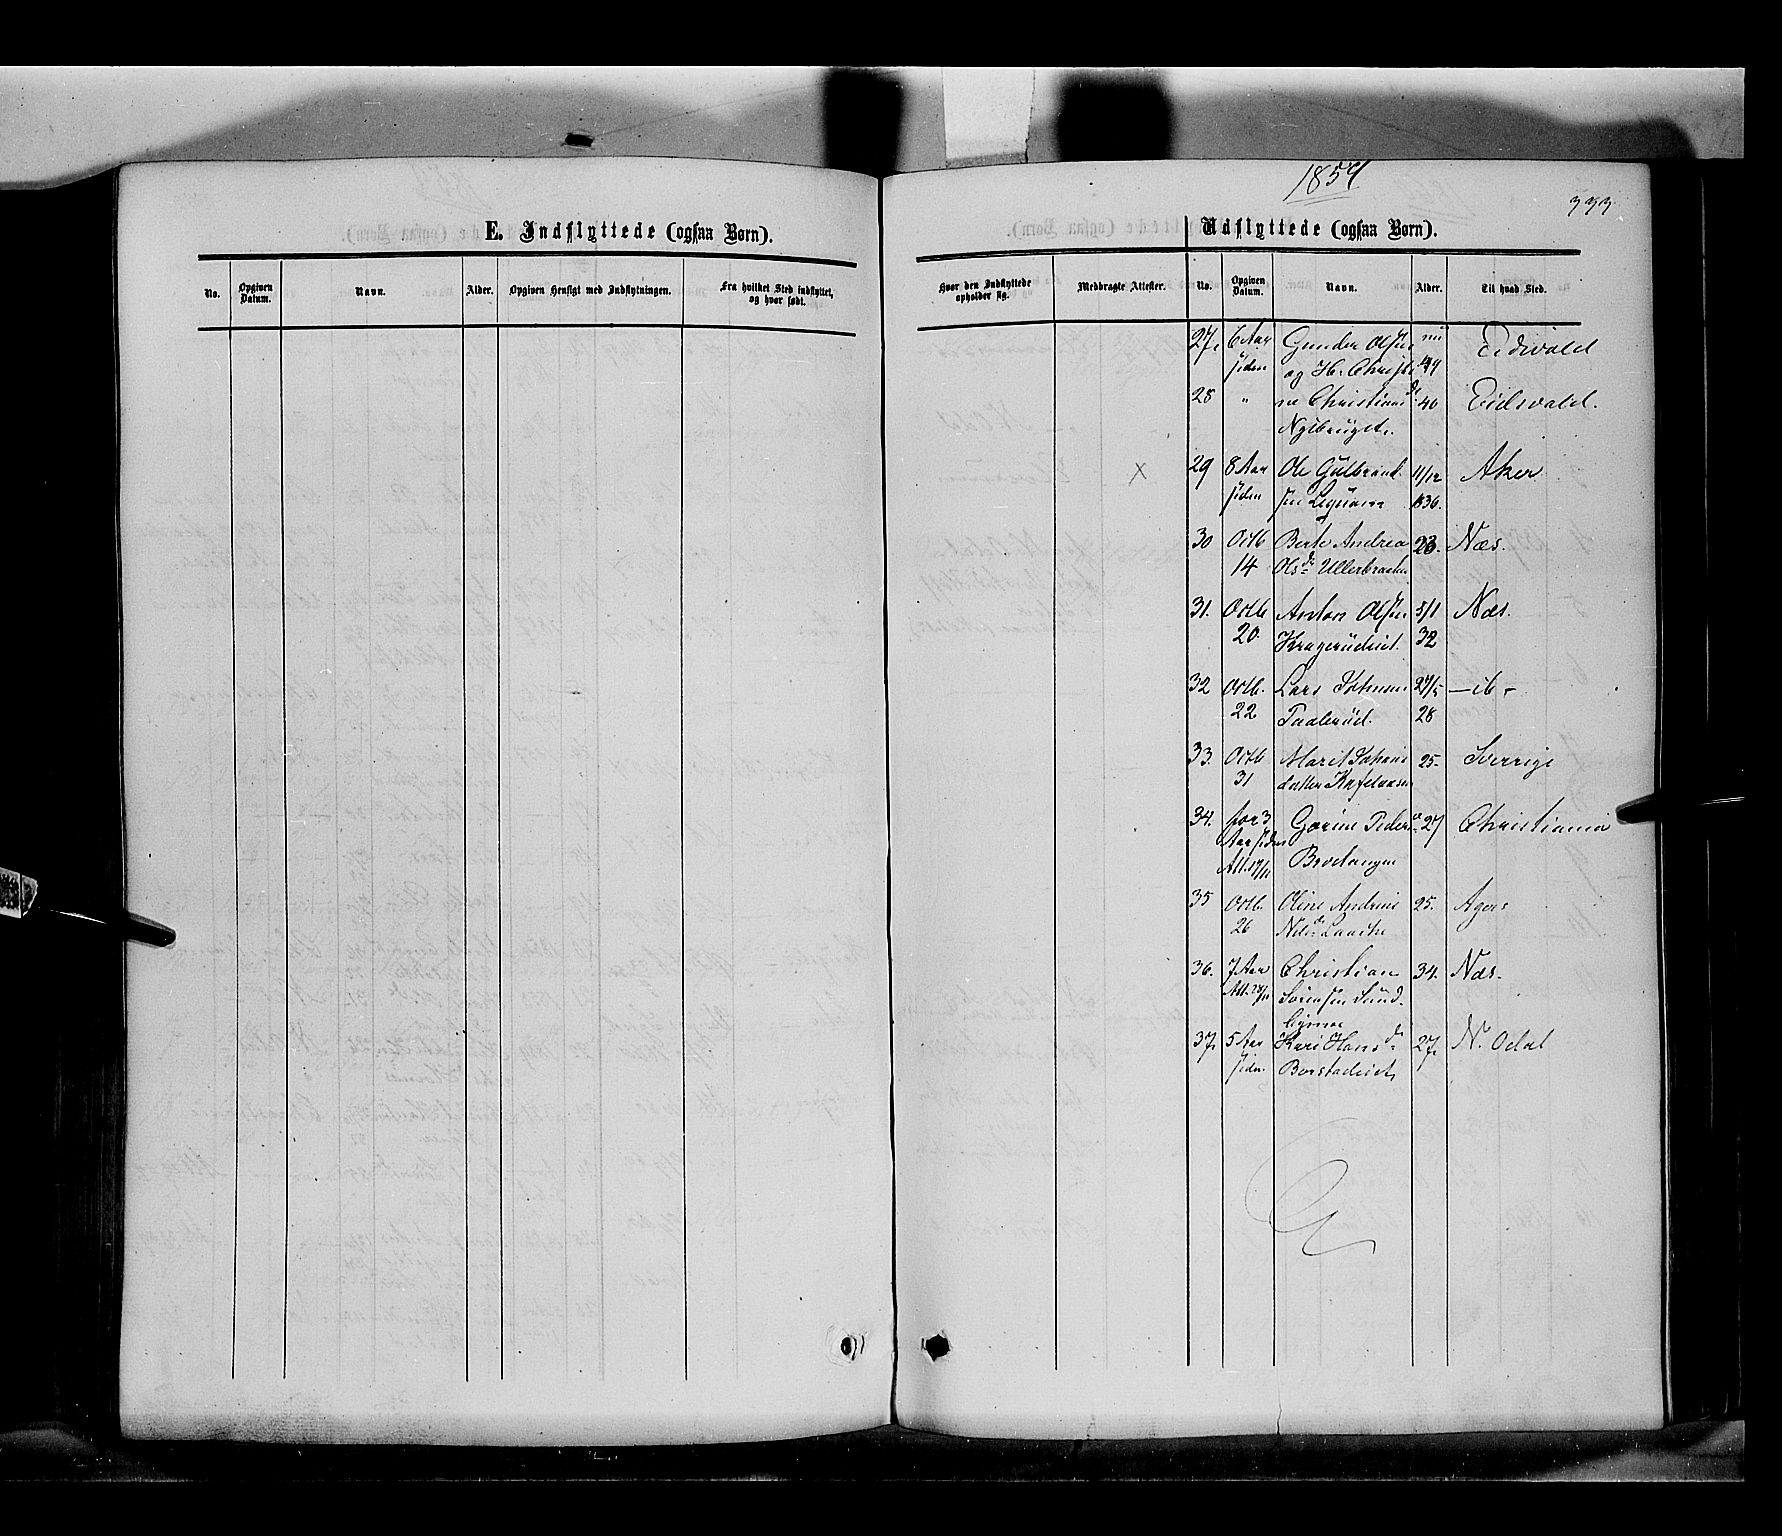 1859
333
E. Indflyttede (ogsaa Børn).
Udflyttede (ogsaa Børn).
No. Opgiven Datum. Navn. Alder. Opgiven Hensigt med Indflytningen. Fra hvilket Sted indflyttet, og hvor født.
Hvor den Indflyttede opholder sig. Medbragte Attester. No. Opgiven Datum. Navn. Alder. Til hvad Sted.
27. 6 Aar Gunder Olsen Eidsvold
siden og H. Christi 49
28 " ne Christians d. 40 Eidsvold.
Nybruget.
X 29 8 Aar Ole Gulbrand 11/12 Aker
siden sen 1836.
30 Octb Berte Andrea 23. Næs.
14 Olsd. Ullerbraaten
31. Octb Anton Olsen 5/1 Næs.
20. Kragerudeiet. 32
32 Octb. Lars Johnsen 27/5 — ib -
22 Taalerud. 28
33. Octb Marit Johans 25. Sverrige
31 datter
34. for 3 Gorine Peders 27 Christiania
Aar siden
Att. 17/11 Brovangen
35 Octb. Oline Andrine 25. Agers
26 Nilsd. Laache
36. 7 Aar Christian 34. Næs.
Sørensen Sund
byeie
37. 5 Aar Kari Hansd. 27. N. Odal
siden Borstadeiet